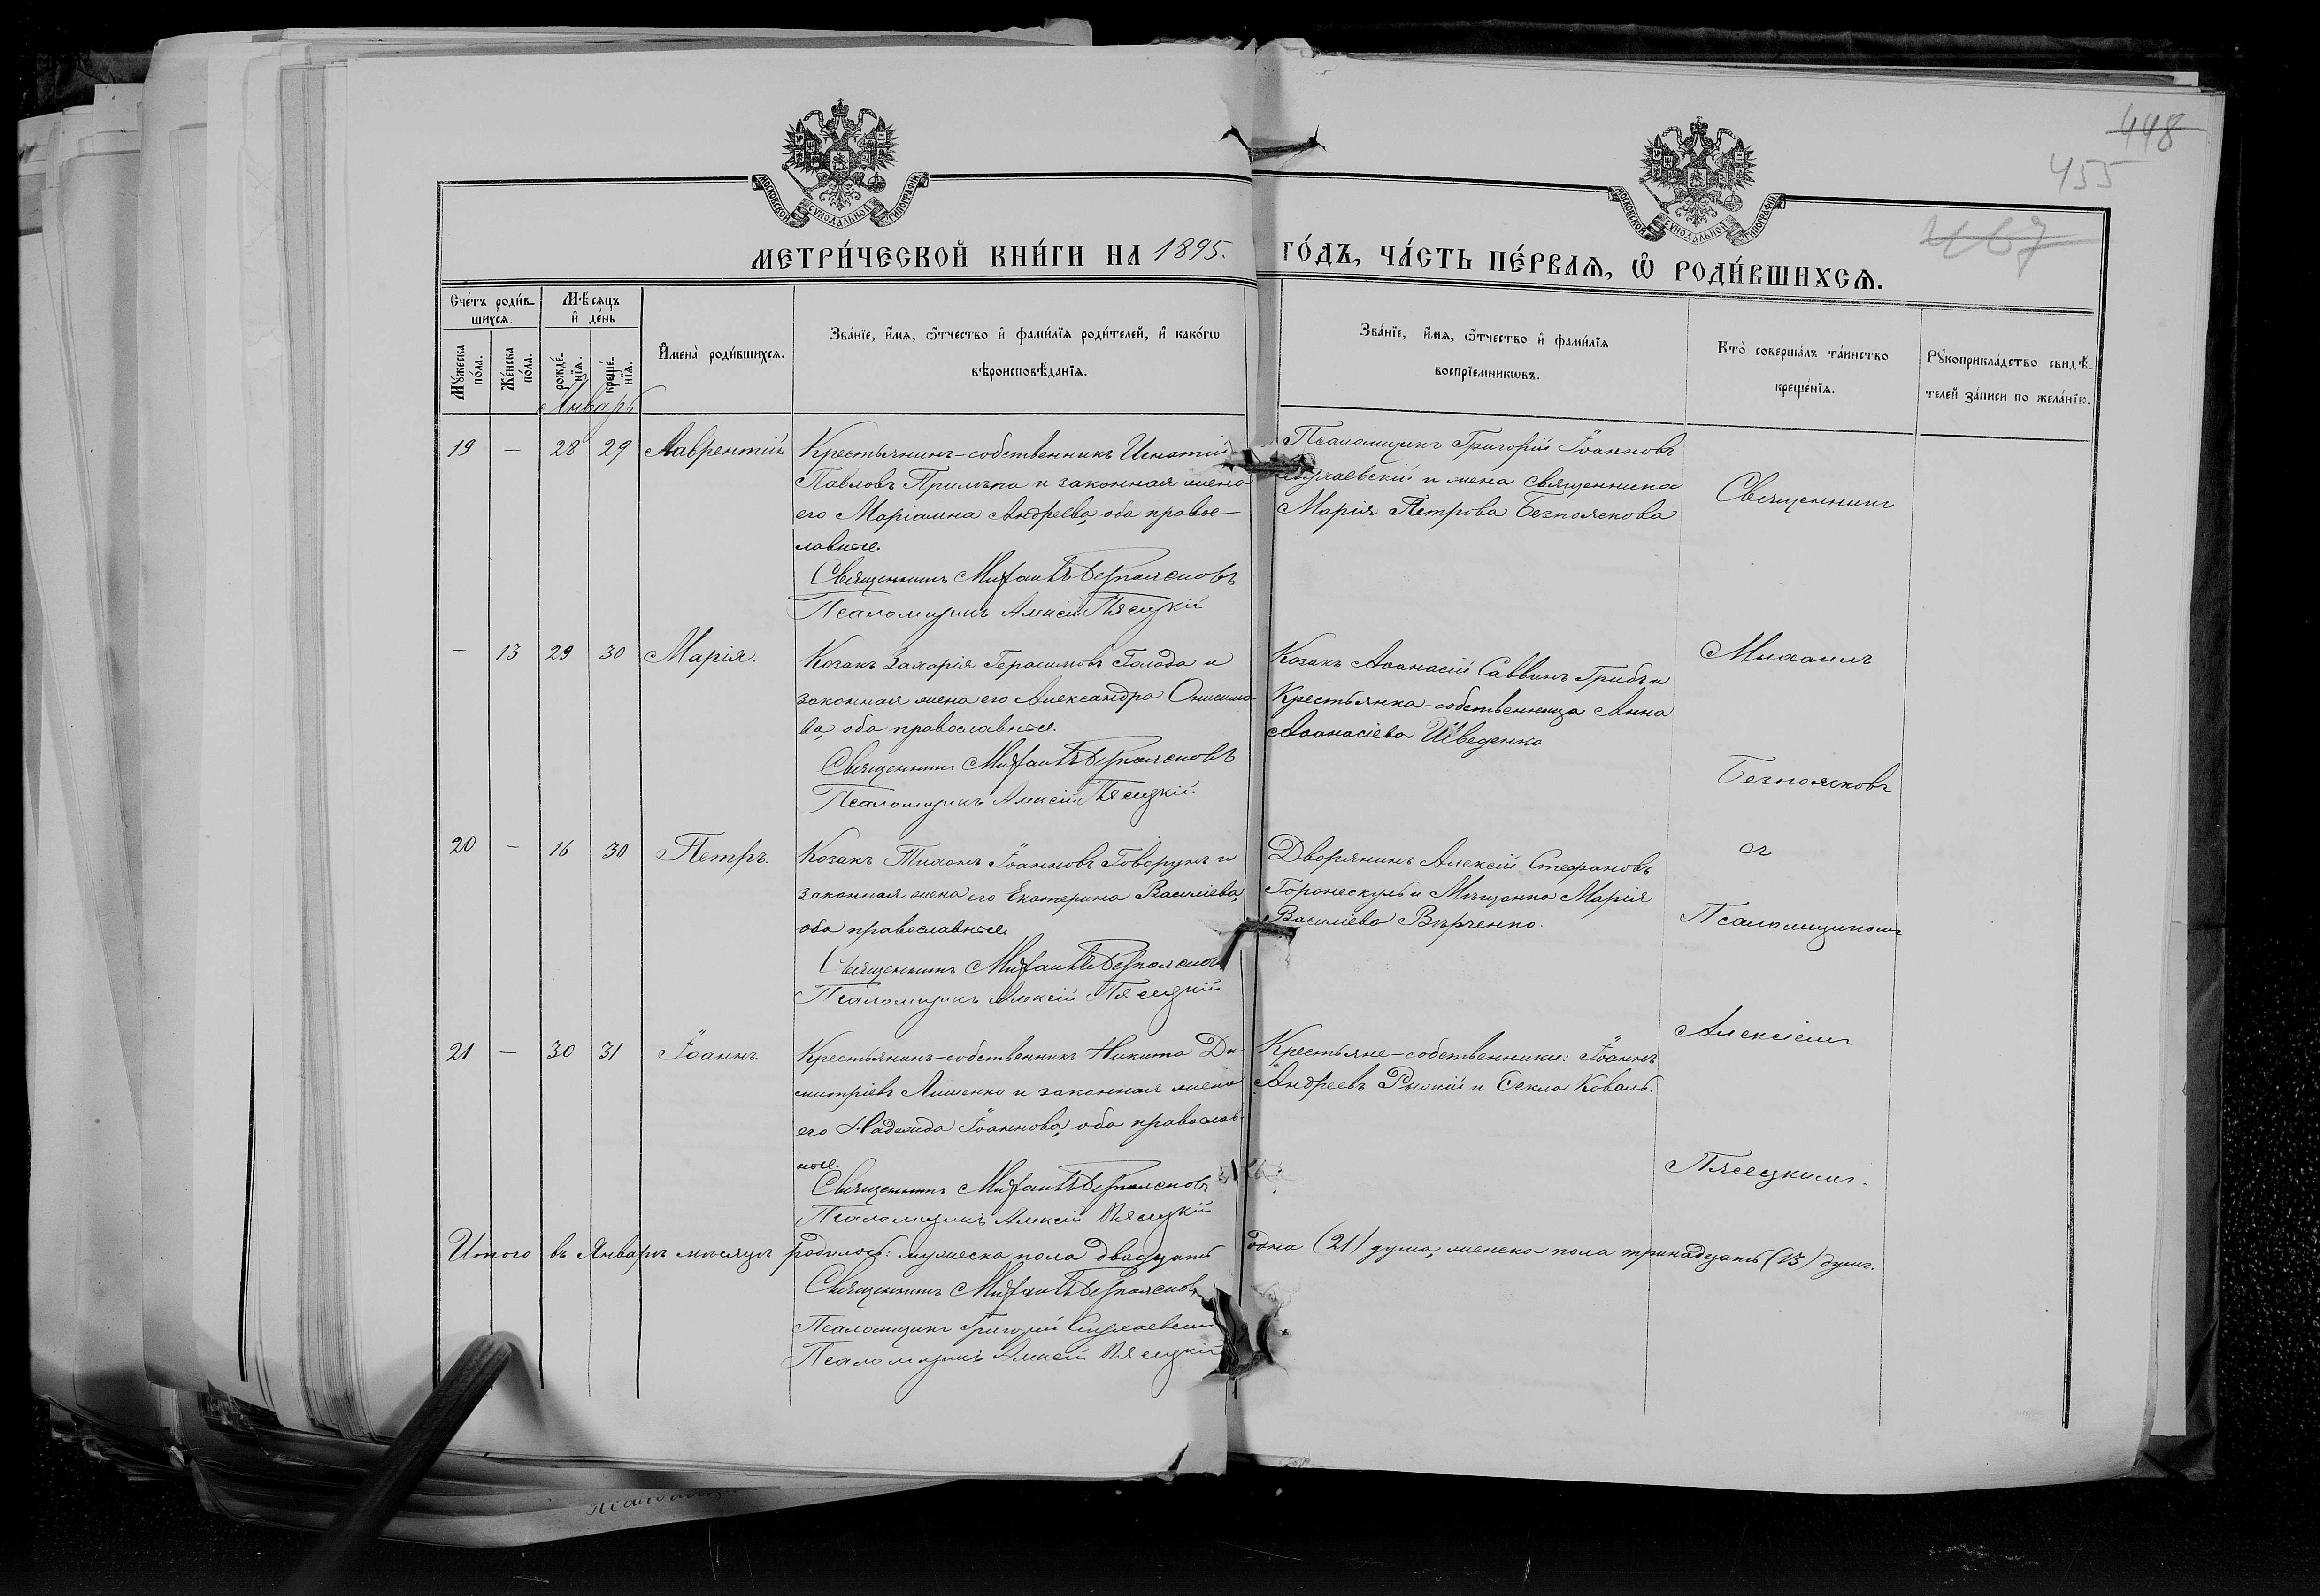 448
455
467
МОСКОВСКОЙ СѴНОДАЛЬНОЙ ТИПОГРАФІИ
МОСКОВСКОЙ СѴНОДАЛЬНОЙ ТИПОГРАФІИ
МЕТРИ́ЧЕСКОЙ КНИ́ГИ НА 1895. ГО́ДЪ, ЧА́СТЬ ПЕ́РВАѦ, Ѽ РОДИ́ВШИХСѦ.
Сче́тъ роди́в-
шихсѧ.
Мѣсѧцъ
и҆ де́нь
Мꙋ́жеска по́ла.
Же́нска по́ла.
рожде́-нїѧ.
креще́-нїѧ.
И҆мена̀ роди́вшихсѧ.
Зва́нїе, и҆́мѧ, ѻ҆́тчество и҆ фами́лїѧ роди́телей, и҆ како́гѡ
вѣроисповѣ́данїѧ.
Зва́нїе, и҆́мѧ, ѻ҆́тчество и҆ фами́лїѧ
воспрїе́мникѡвъ.
Кто̀ соверша́лъ та́инство
креще́нїѧ.
Рꙋкоприкла́дство свидѣ́-
телей за́писи по жела́нїю.
Январь
19 — 28 29 Лаврентій
Крестьянинъ-собственникъ Игнатій
Павловъ Примѣпа и законная жена
его Маріамна Андреева, оба право-
славные.
Священникъ Михаилъ Безпоясковъ
Псаломщикъ Алексій Пясецкій
Псаломщикъ Григорій Іоанновъ
и жена священника
Марія Петрова Безпояскова
Священникъ
— 13 29 30 Марія.
Козакъ Захарія Герасимовъ Голода и
законная жена его Александра Онисимо-
ва, оба православные.
Священникъ Михаилъ Безпоясковъ
Псаломщикъ Алексій Пясецкій.
Козакъ Аѳанасій Саввинъ Грибъ и
Крестьянка-собственница Анна
Аѳанасіева Шведенко
Михаилъ
Безпоясковъ
20 — 16 30 Петръ.
Козакъ Тихонъ Іоанновъ Говорунъ и
законная жена его Екатерина Василіева,
оба православные.
Священникъ Михаилъ Безпоясковъ
Псаломщикъ Алексій Пясецкій
Дворянинъ Алексій Стефановъ
Горонескуль и Мѣщанка Марія
Василіева Вѣрченко.
съ
Псаломщикомъ
21 — 30 31 Іоаннъ.
Крестьянинъ-собственникъ Никита Ди-
митріевъ Лишенко и законная жена
его Надежда Іоаннова, оба православ-
ные.
Священникъ Михаилъ Безпоясковъ
Псаломщикъ Алексій Пясецкій
Крестьяне-собственники: Іоаннъ
Андреевъ Рыжій и Ѳекла Коваль.
Алексіемъ
Пясецкимъ.
Итого въ Январѣ мѣсяцѣ родилось: мужеска пола двадцать одна (21) душа, женска пола тринадцать (13) душъ.
Священникъ Михаилъ Безпоясковъ
Псаломщикъ Григорій
Псаломщикъ Алексій Пясецкій